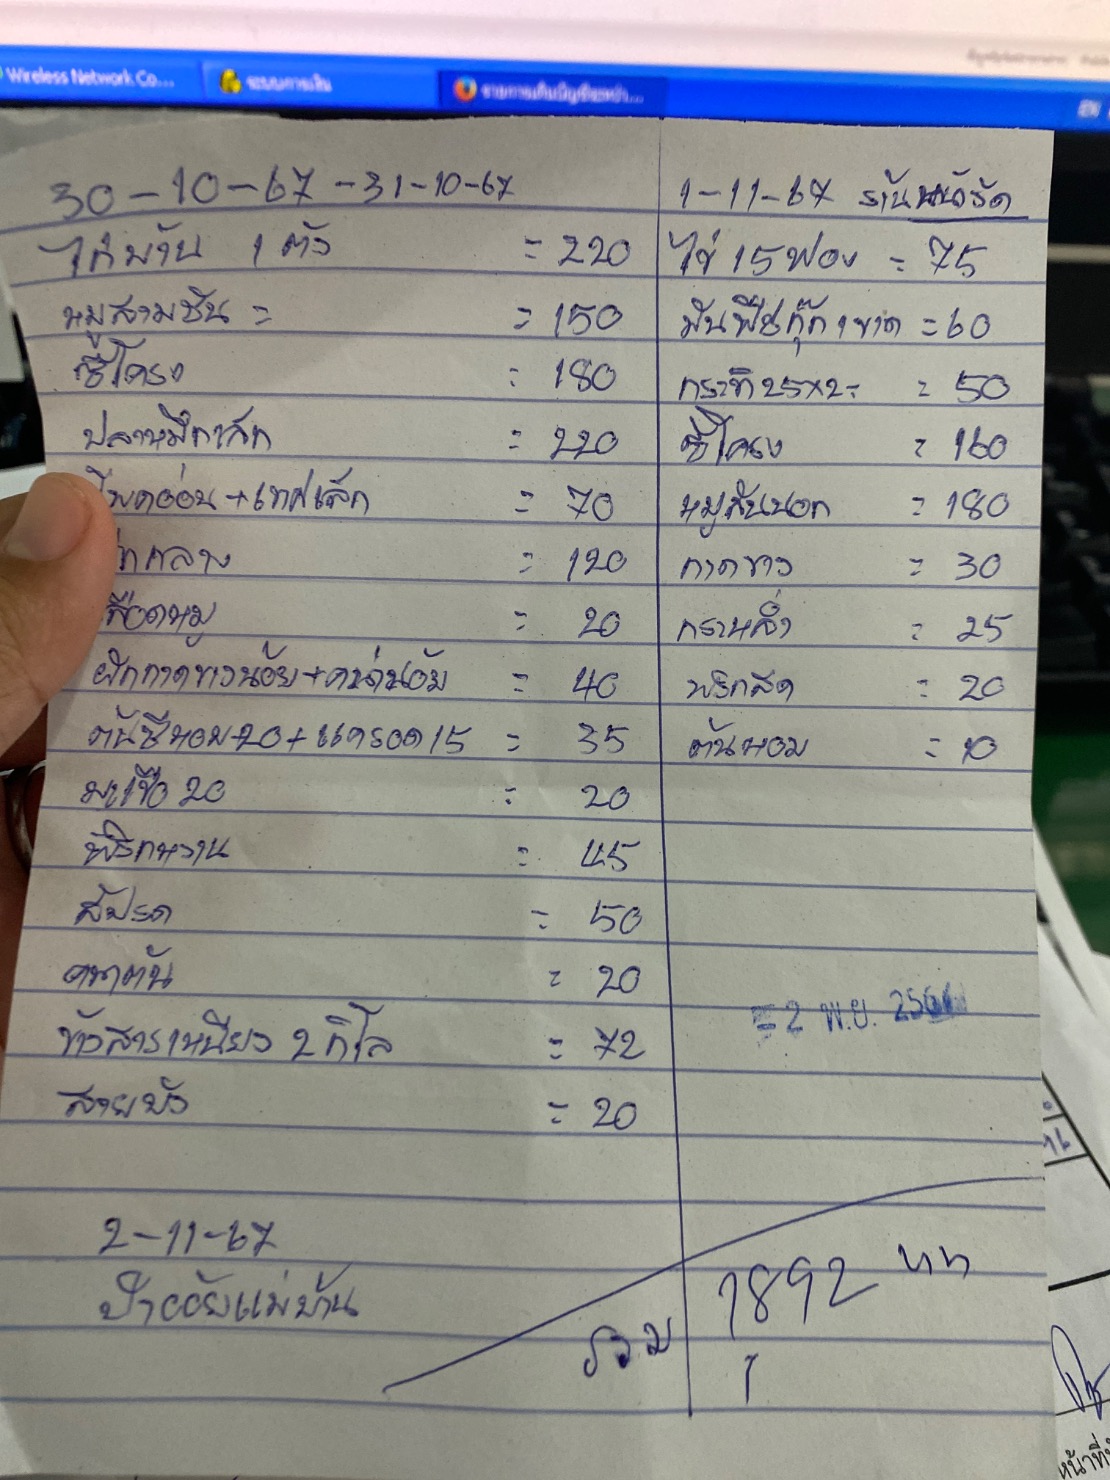 Wireless Network Co...
ระบบการเงิน
30-10-67 -31-10-67
ไก่บ้าน 1 ตัว = 220
หมูสามชั้น = = 150
ซี่โครง = 180
ปลาหมึกเล็ก = 220
โพดอ่อน + = 70
กลาง = 120
ือดหมู = 20
ผักกาดขาวน้อย + คน้าน้อย = 40
ต้นซีหอม 20 + แครอด 15 = 35
มะเขือ 20 = 20
พริกหวาน = 45
สัปรด = 50
= 20
ข้าวสารเหนียว 2 กิโล = 72
สายบัว = 20
2-11-67
ป้าออยแม่บ้าน
1-11-67 ร้านหน้ารัด
ไข่ 15 ฟอง = 75
= 60
กระทิ 25x2 = = 50
ซี่โครง = 160
หมูสันนอก = 180
กาดขาว = 30
กราหล่ำ = 25
พริกสด = 20
ต้นหอม = 10
= 2 พ.ย.
รวม 1892 บาท
หน้าที่